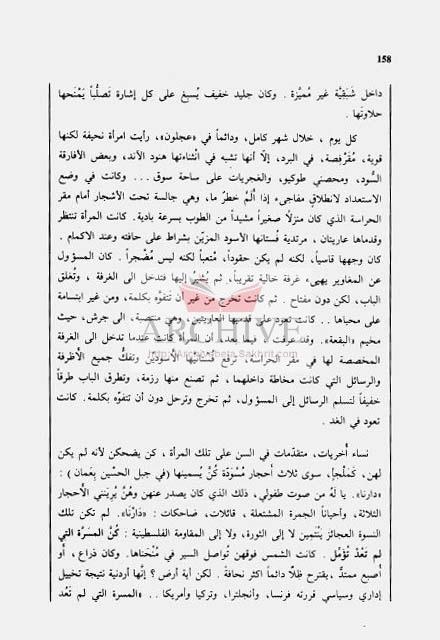 158
داخل شَبَقيَّة غير مُميَّزة . وكان جليد خفيف يُسبغ على كل إشارة تَصلُّباً يَمْنحها
حلاوتَها .
كل يوم ، خلال شهر كامل، ودائماً في «عجلون»، رأيت امرأة نحيفة لكنها
قوية، مُقَرْفِصة، في البرد، إلّا أنها تشبه في انْثناءتها هنود الآند، وبعض الأفارقة
السُّود، ومحصني طوكيو، والغجريات على ساحة سوق ... وكانت في وضع
الاستعداد لانطلاقٍ مفاجىء إذا ألَمَّ خطرٌ ما، وهي جالسة تحت الأشجار أمام مقر
الحراسة الذي كان منزلًا صغيراً مشيداً من الطوب بسرعة بادية. كانت المرأة تنتظر
وقدماها عاريتان ، مرتدية فُستانها الأسود المزيّن بشراط على حافته وعند الاكمام .
كان وجهها قاسياً، لكنه لم يكن حقوداً، مُتعباً لكنه ليس مُضْجراً . كان المسؤول
عن المغاوير يهيىء غرفة خالية تقريباً، ثم يُشير إليها فتدخل الى الغرفة ، وتُغلق
الباب، لكن دون مفتاح . ثم كانت تخرج من غير أن تَتفوَّه بكلمة، ومن غير ابتسامة
على محياها . . كانت تعود على قدميها العاريتين ، وهي منتصبة، الى جرش، حيث
مخيم «البقعة». وقد عرفت ، فيما بعد، أن المرأة كانت عندما تدخل الى الغرفة
المخصصة لها في مقر الحراسة، ترفع فستانيها الأسودين وتفكُّ جميع الأظرفة
والرسائل التي كانت مخاطة داخلهما ، ثم تصنع منها رزمة، وتطرق الباب طرقاً
خفيفاً لتسلم الرسائل إلى المسؤول، ثم تخرج وترحل دون أن تتفوّه بكلمة. كانت
تعود في الغد .
نساء أُخريات، متقدّمات في السن على تلك المرأة ، كن يضحكن لأنه لم يكن
لهن، كَمَلْجأٍ، سوى ثلاث أحجار مُسْوَدّة كُنَّ يُسمينها (في جبل الحسّين بعَمان ) :
«دارنا». يا لَهُ من صوت طفولي، ذلك الذي كان يصدر عنهن وهُنَّ يُرينني الأحجار
الثلاثة، وأحياناً الجمرة المشتعلة ، قائلات، ضاحكات : «دَارْنَا». لم تكن تلك
النسوة العجائز يَنْتَمِين لا إلى الثورة، ولا إلى المقاومة الفلسطينية : كُنَّ المسَرّة التي
لم تَعُدْ تُؤمِّل . كانت الشمس فوقهن تُواصل السير في مُنْحناها. وكان ذراع ، أو
أصبع ممتدٌ ، يقترح ظِلّا دائماً اكثر نحافةً . لكن أية أرض ؟ إنَّها أردنية نتيجة تخييل
إداري وسياسي قررته فرنسا، وأنجلترا، وتركيا وأمريكا .. «المسرة التي لم تَعُد
ARCHIVE